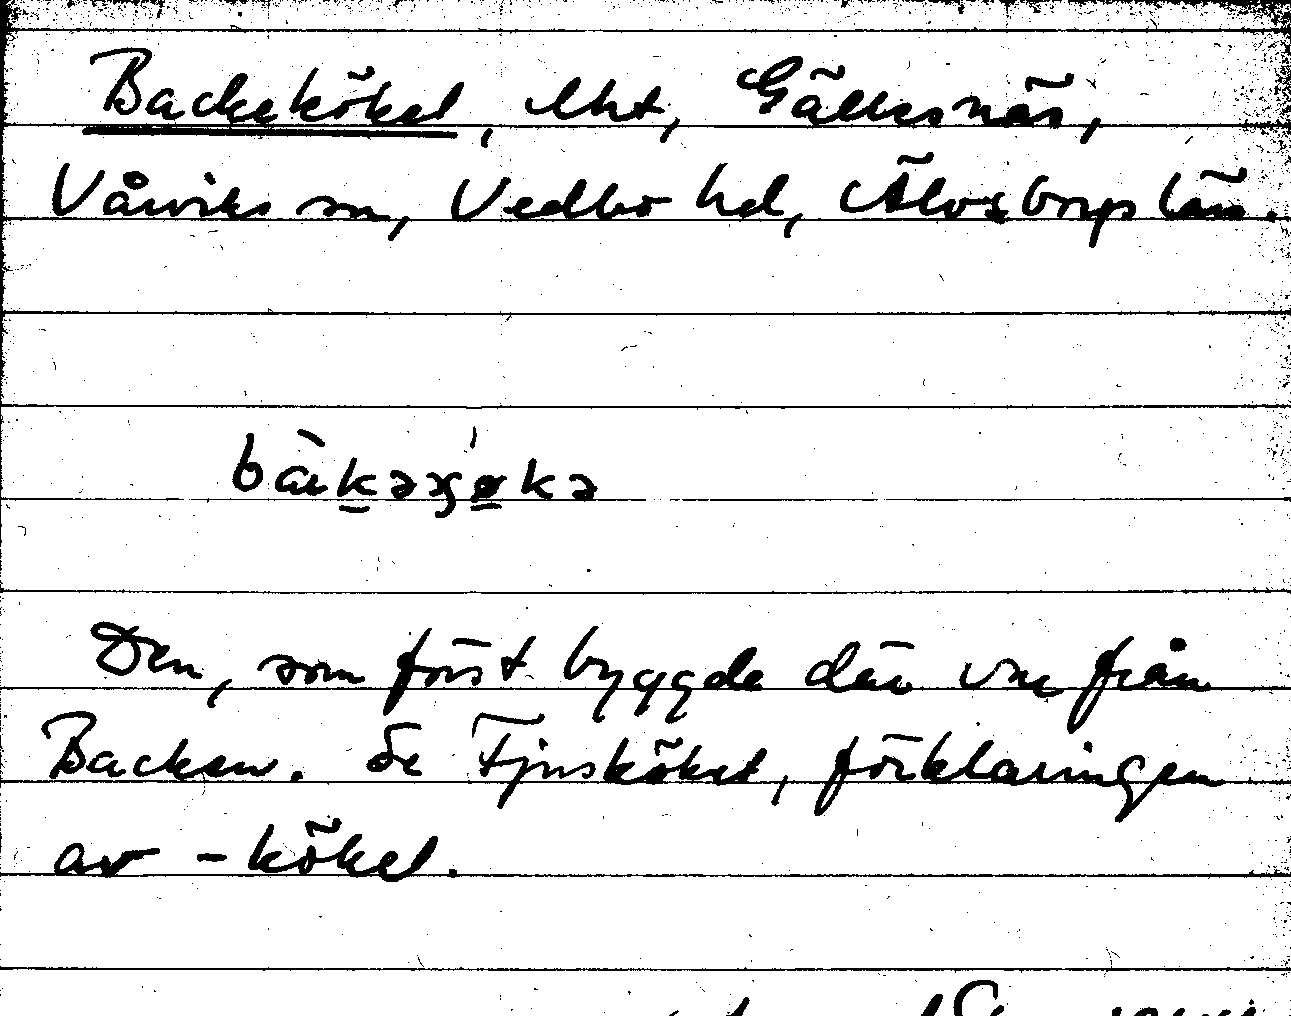 Backeköket, lht, Gällesnäs,
Vårviks sn, Vedbo hd, Älvsborgs län.
Den, som först byggde där var från
Backen. Se Tjusköket, förklaringen
av -köket.